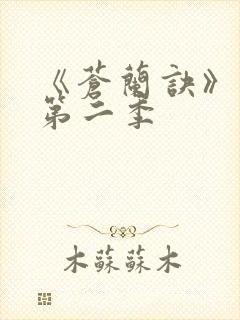 《蒼蘭訣》
第二季
木蘇蘇木